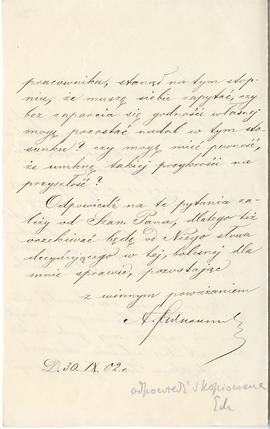 pracownika, stanął na tym stop-
niu, że muszę siebie zapytać, czy
bez zaparcia się godności własnej
mogę pozostać nadal w tym sto-
sunku? czy mogę mieć pewność,
że uniknę takiej przykrości na
przyszłość?
Odpowiedź na te pytania za-
leży od Szan. Pana, dlatego też
oczekiwać będę od Niego słowa
decydującego w tej, bolesnej dla
mnie sprawie, pozostając
z winnym poważaniem
A.
D. 30. IX. 02 r.
odpowiedź skopiowana